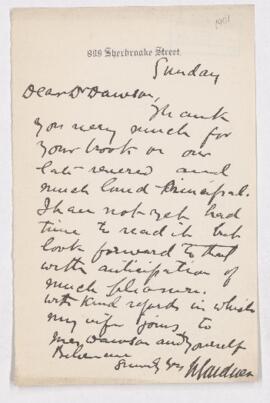 1901
Sherbrooke Street.
Sunday
Dear Dr Dawson,
Thank
you very much for
your book on our
late revered and
much loved Principal.
I have not yet had
time to read it but
look forward to that
with anticipation of
much pleasure.
with kind regards in which
my wife joins to
Mrs Dawson and yourself
Believe me
Sincerely yrs